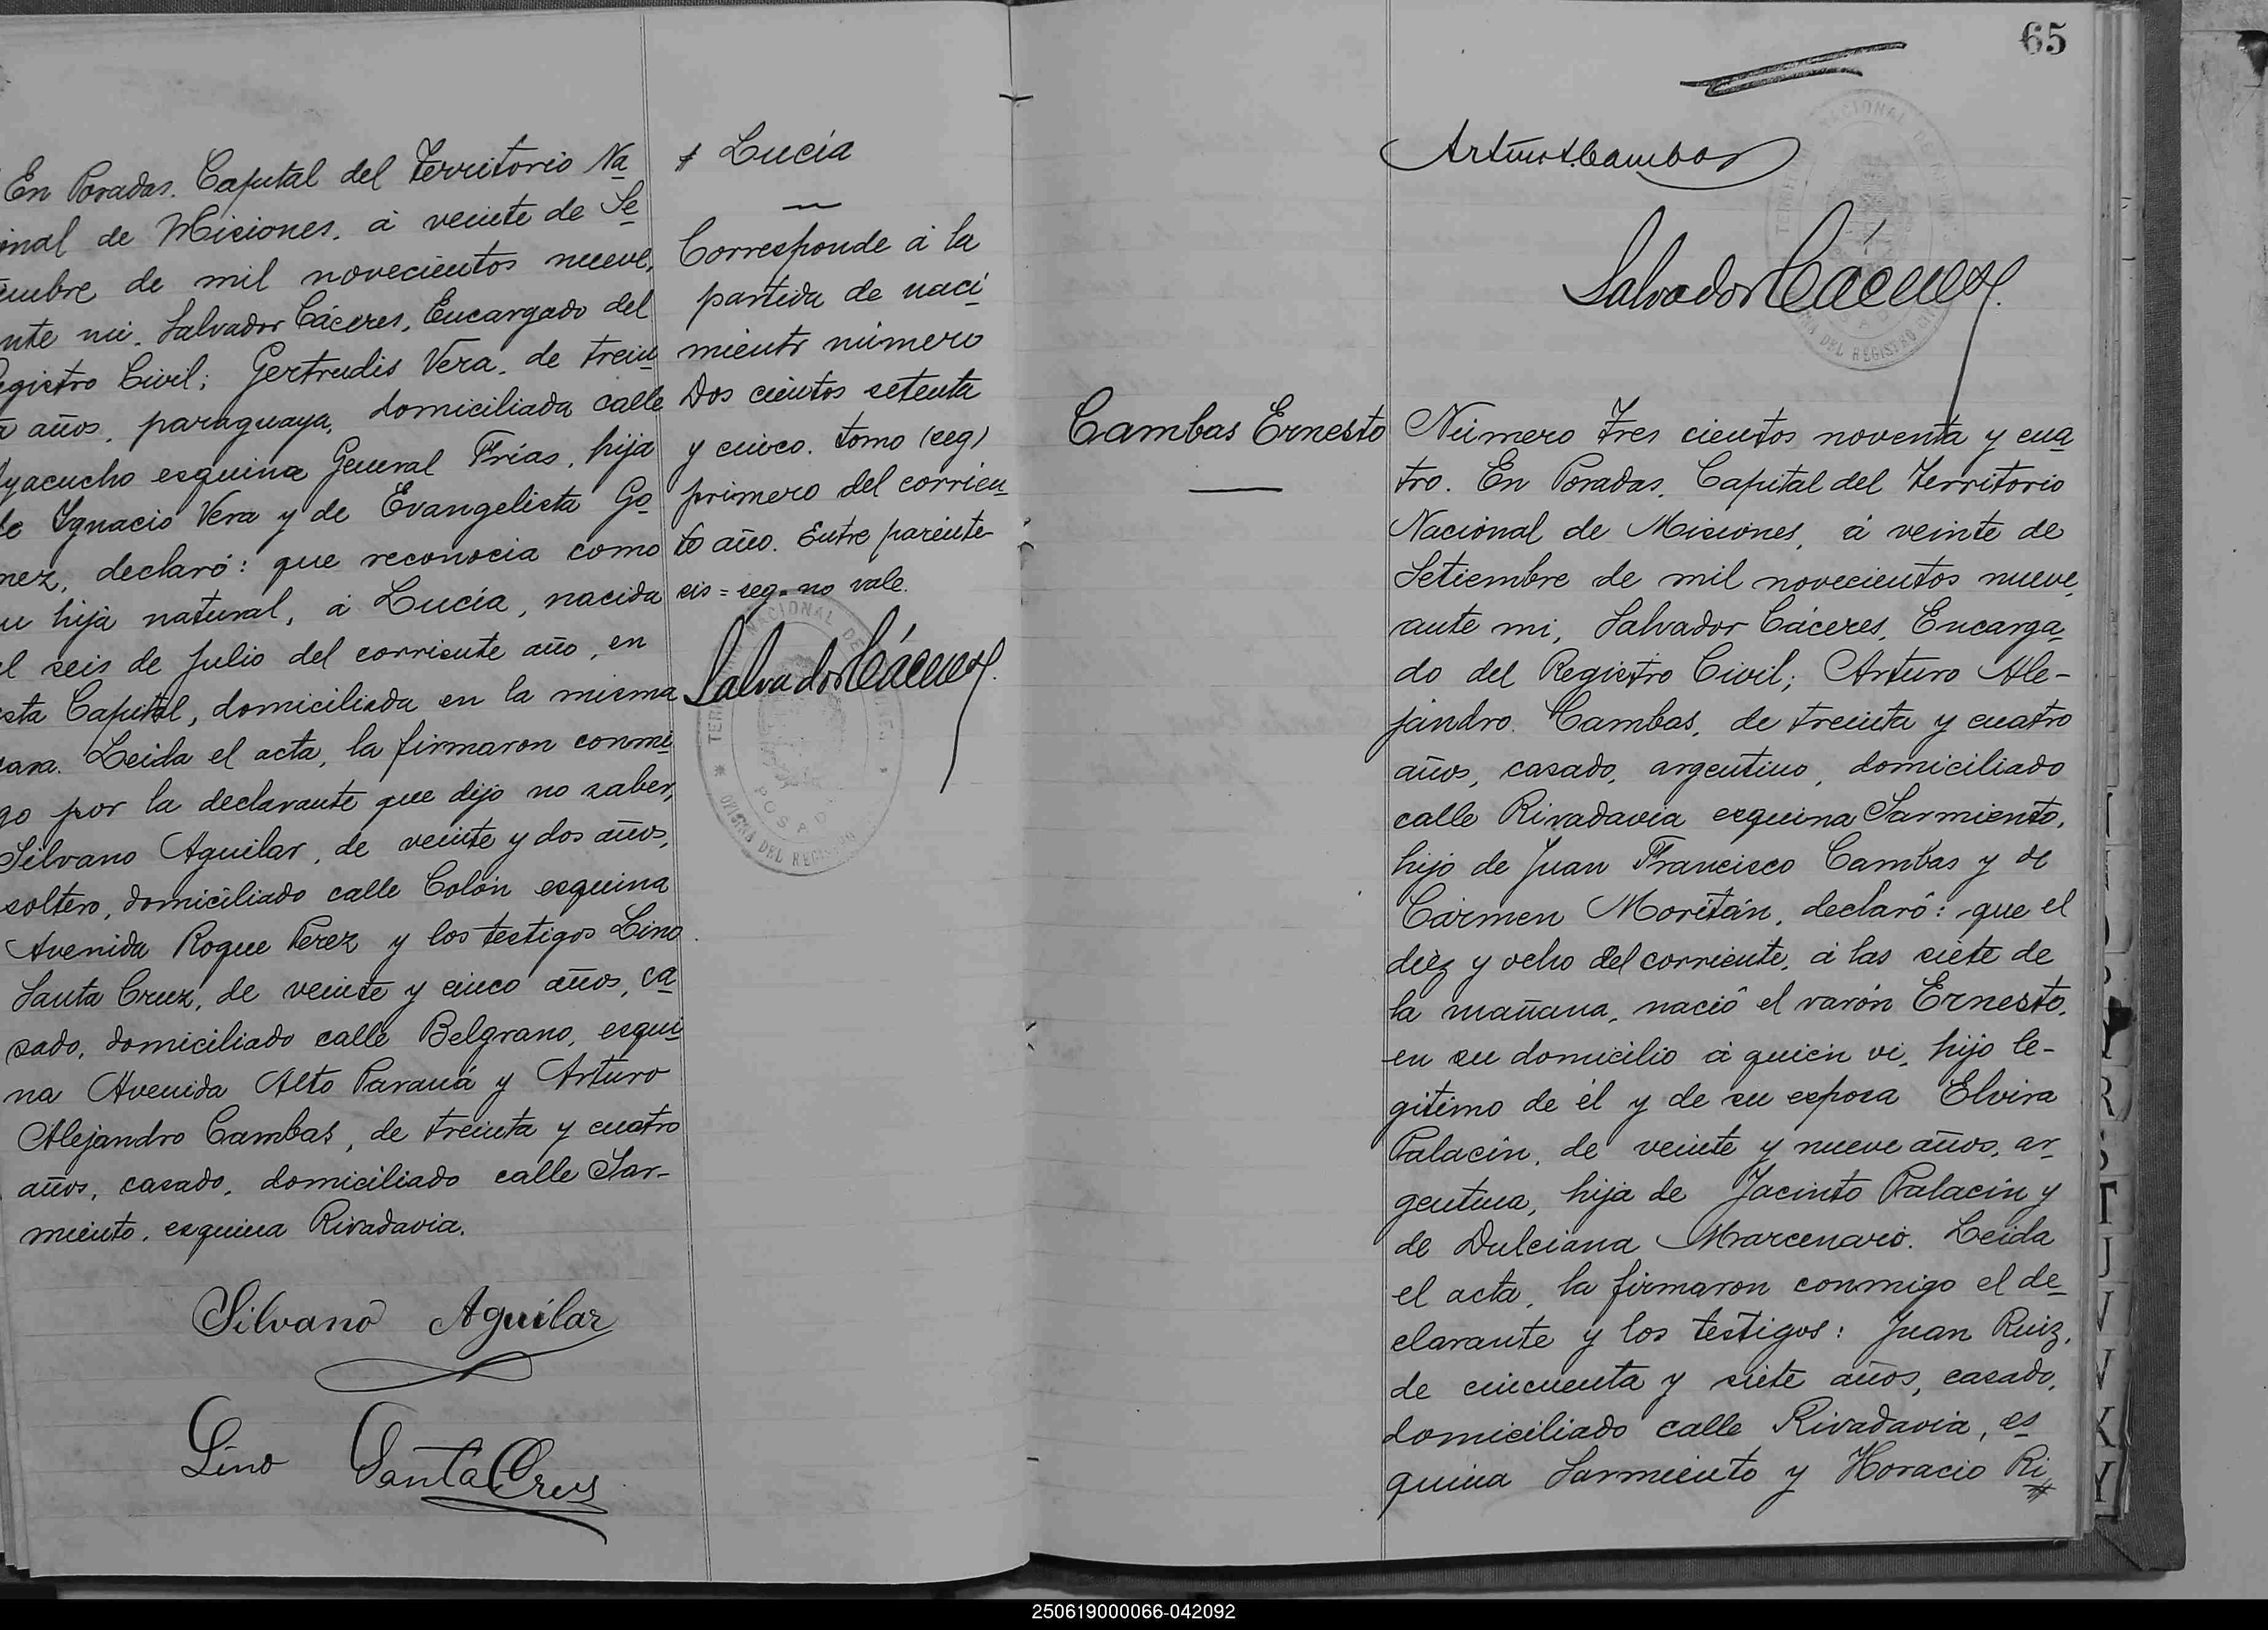 En Posadas. Capital del Territorio Na
inal de Misiones, á veinte de Se
embre de mil novecientos nueve,
nte mi. Salvador Cáceres, Encargado del
egistro Civil; Gertrudis Vera, de trein
a años, paraguaya, domiciliada calle
yacucho esquina General Frías, hija
de Ygnacio Vera y de Evangelista Go
mez, declaró: que reconocia como
su hija natural, á Lucía, nacida
el seis de Julio del corriente año, en
esta Capital, domiciliada en la misma
casa. Leida el acta, la firmaron conmi
go por la declarante que dijo no saber,
Silvano Aguilar, de veinte y dos años,
soltero, domiciliado calle Colón esquina
Avenida Roque Perez y los testigos Lino
Santa Cruz, de veinte y cinco años, ca
sado, domiciliado calle Belgrano, esqui
na Avenida Alto Paraná y Arturo
Alejandro Cambas, de treinta y cuatro
años, casado, domiciliado calle Sar-
miento, esquina Rivadavia.
Silvano Aguilar
Lino Santa Cruz
Lucía
Corresponde á la
partida de naci
miento número
Dos cientos setenta
y cinco. tomo (seg)
primero del corrien
te año. Entre parénte
sis = seg = no vale.
Salvador Cáceres
TERRITORIO NACIONAL DE MISIONES
POSADAS
OFICINA DEL REGISTRO
65
Arturo A. Cambas
Salvador Cáceres
OFICINA DEL REGISTRO CIVIL
Cambas Ernesto
Número tres cientos noventa y cua
tro. En Posadas, Capital del Territorio
Nacional de Misiones, á veinte de
Setiembre de mil novecientos nueve,
ante mi, Salvador Cáceres, Encarga
do del Registro Civil; Arturo Ale-
jandro Cambas, de treinta y cuatro
años, casado, argentino, domiciliado
calle Rivadavia esquina Sarmiento,
hijo de Juan Francisco Cambas y de
Cármen Moritán, declaró: que el
diez y ocho del corriente, á las siete de
la mañana, nació el varón Ernesto,
en su domicilio á quien vi, hijo le-
gitimo de él y de su esposa Elvira
Palacin, de veinte y nueve años, ar
gentina, hija de Jacinto Palacin y
de Dulciana Marcenaro. Leida
el acta, la firmaron conmigo el de
clarante y los testigos: Juan Ruiz,
de cincuenta y siete años, casado,
domiciliado calle Rivadavia, es
quina Sarmiento y Horacio Ri
R
S
T
J
V
V
K
Y
250619000066-042092